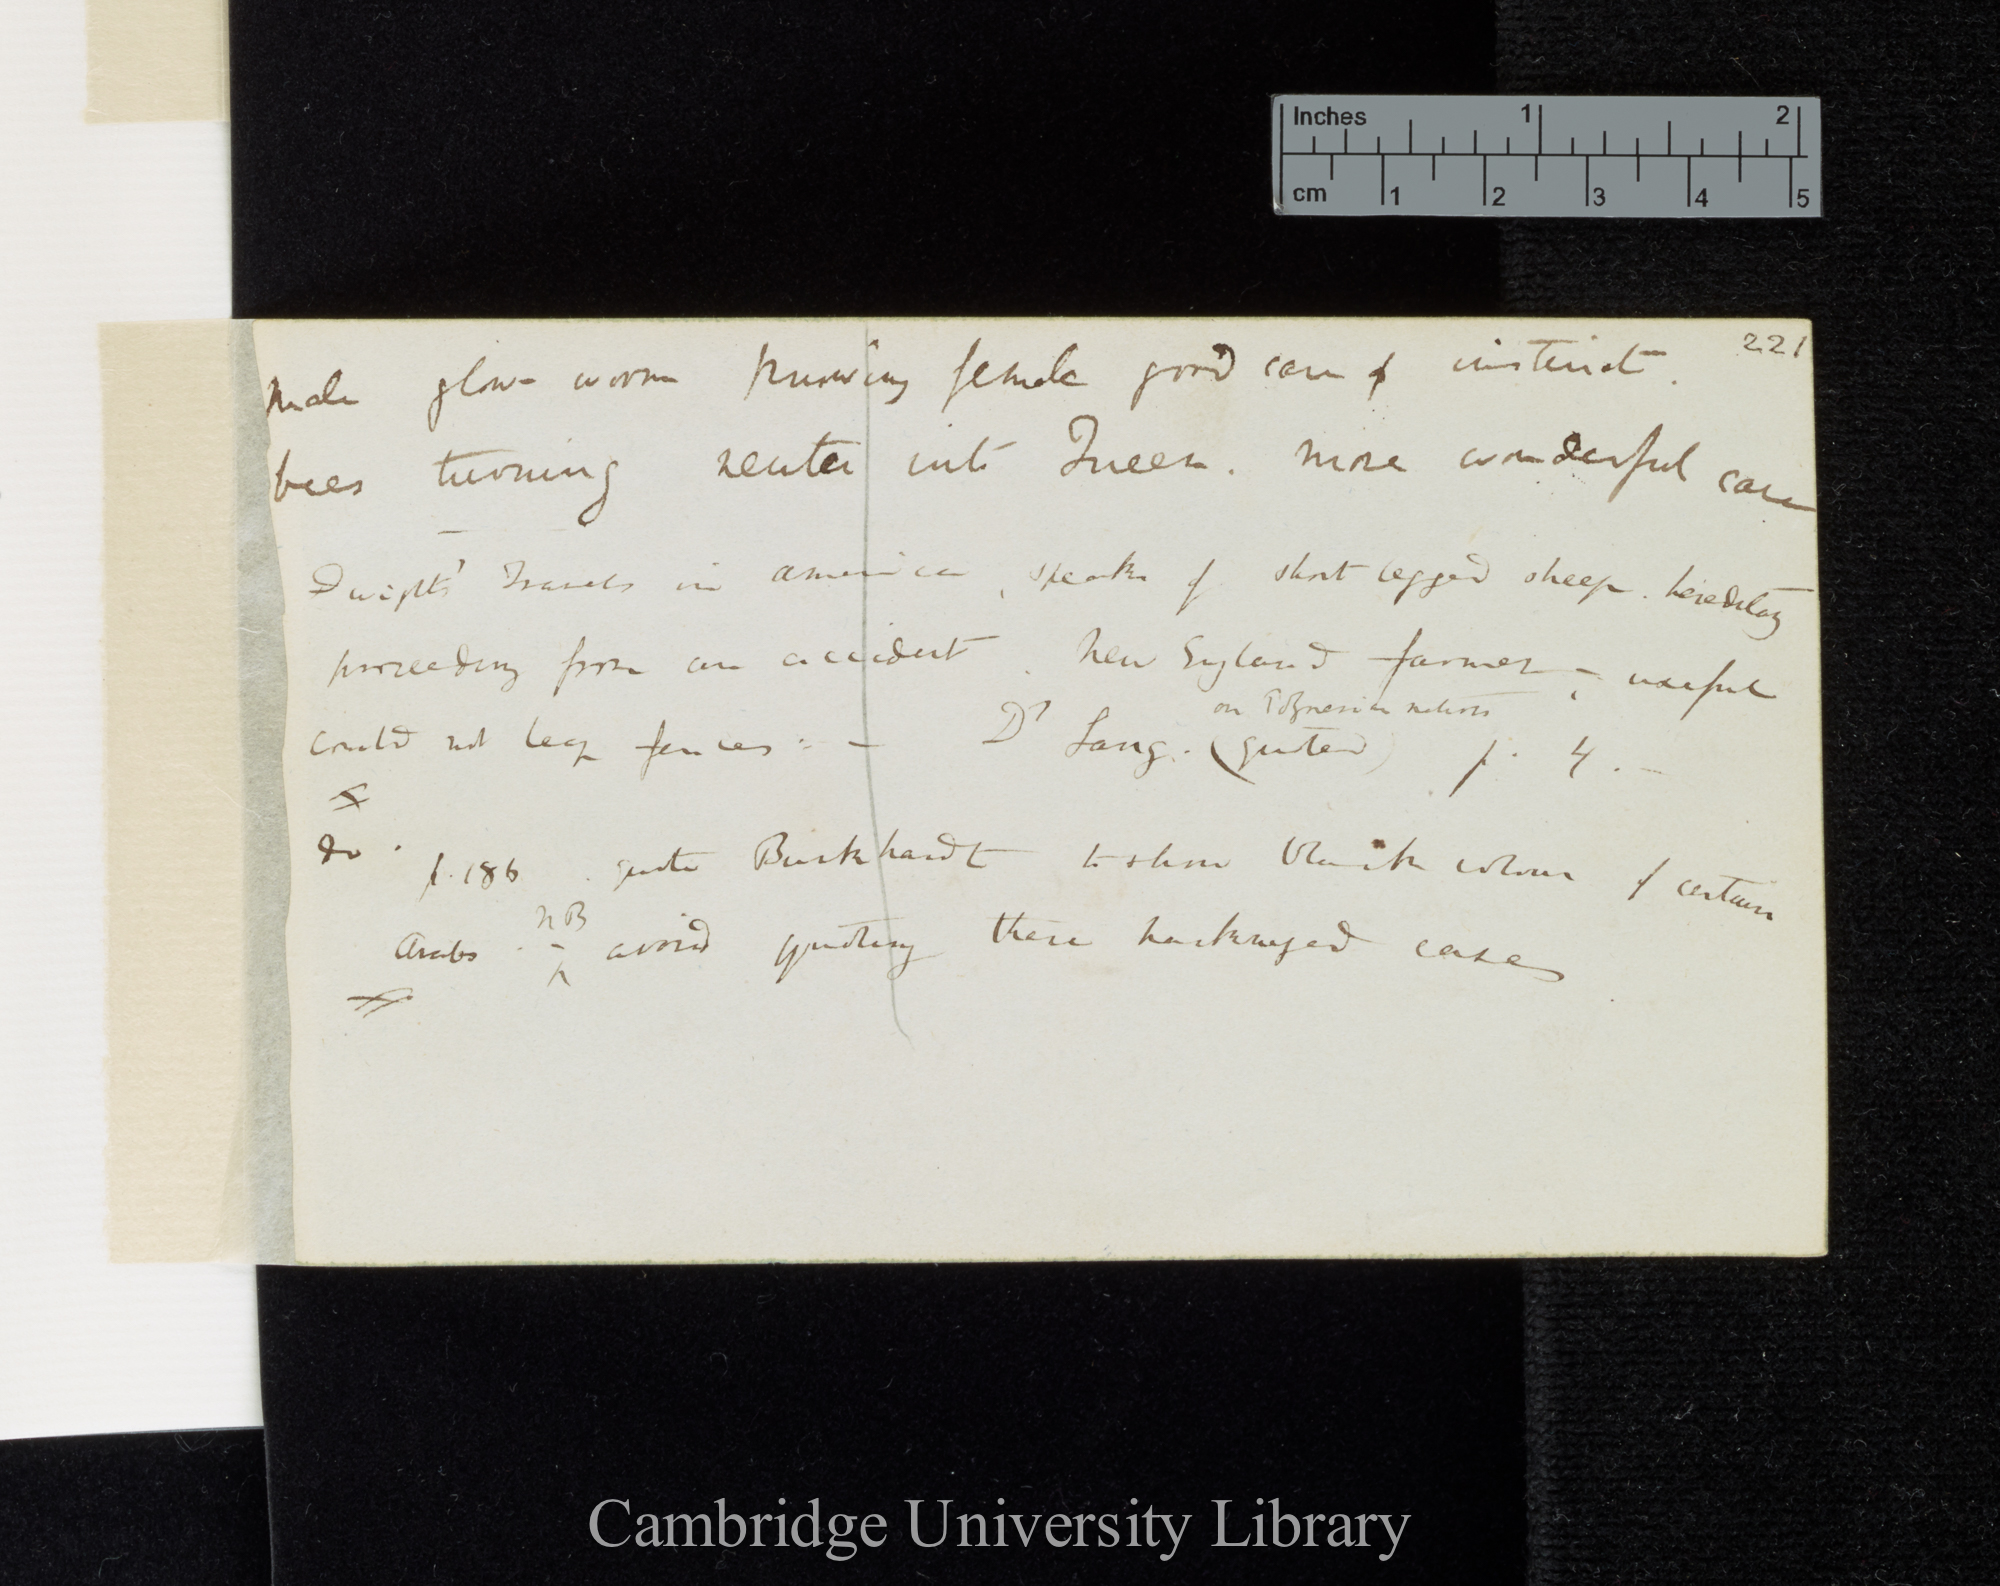 Inches 1 2
cm 1 2 3 4 5
221
Male glow-worm knowing female good case of instinct.
bees turning neuter into Queen. more wonderful case
—
Dwight's Travels in America, speaks of short legged sheep. hereditary
proceeding from an accident. New England farmer — useful
could not leap fences: — Dr Lang. (quoted) p. 4. —
on Polynesian nations
do. p. 186. quote Burkhardt to show black colour of certain
Arabs. NB avoid quoting these hackneyed cases
Cambridge University Library